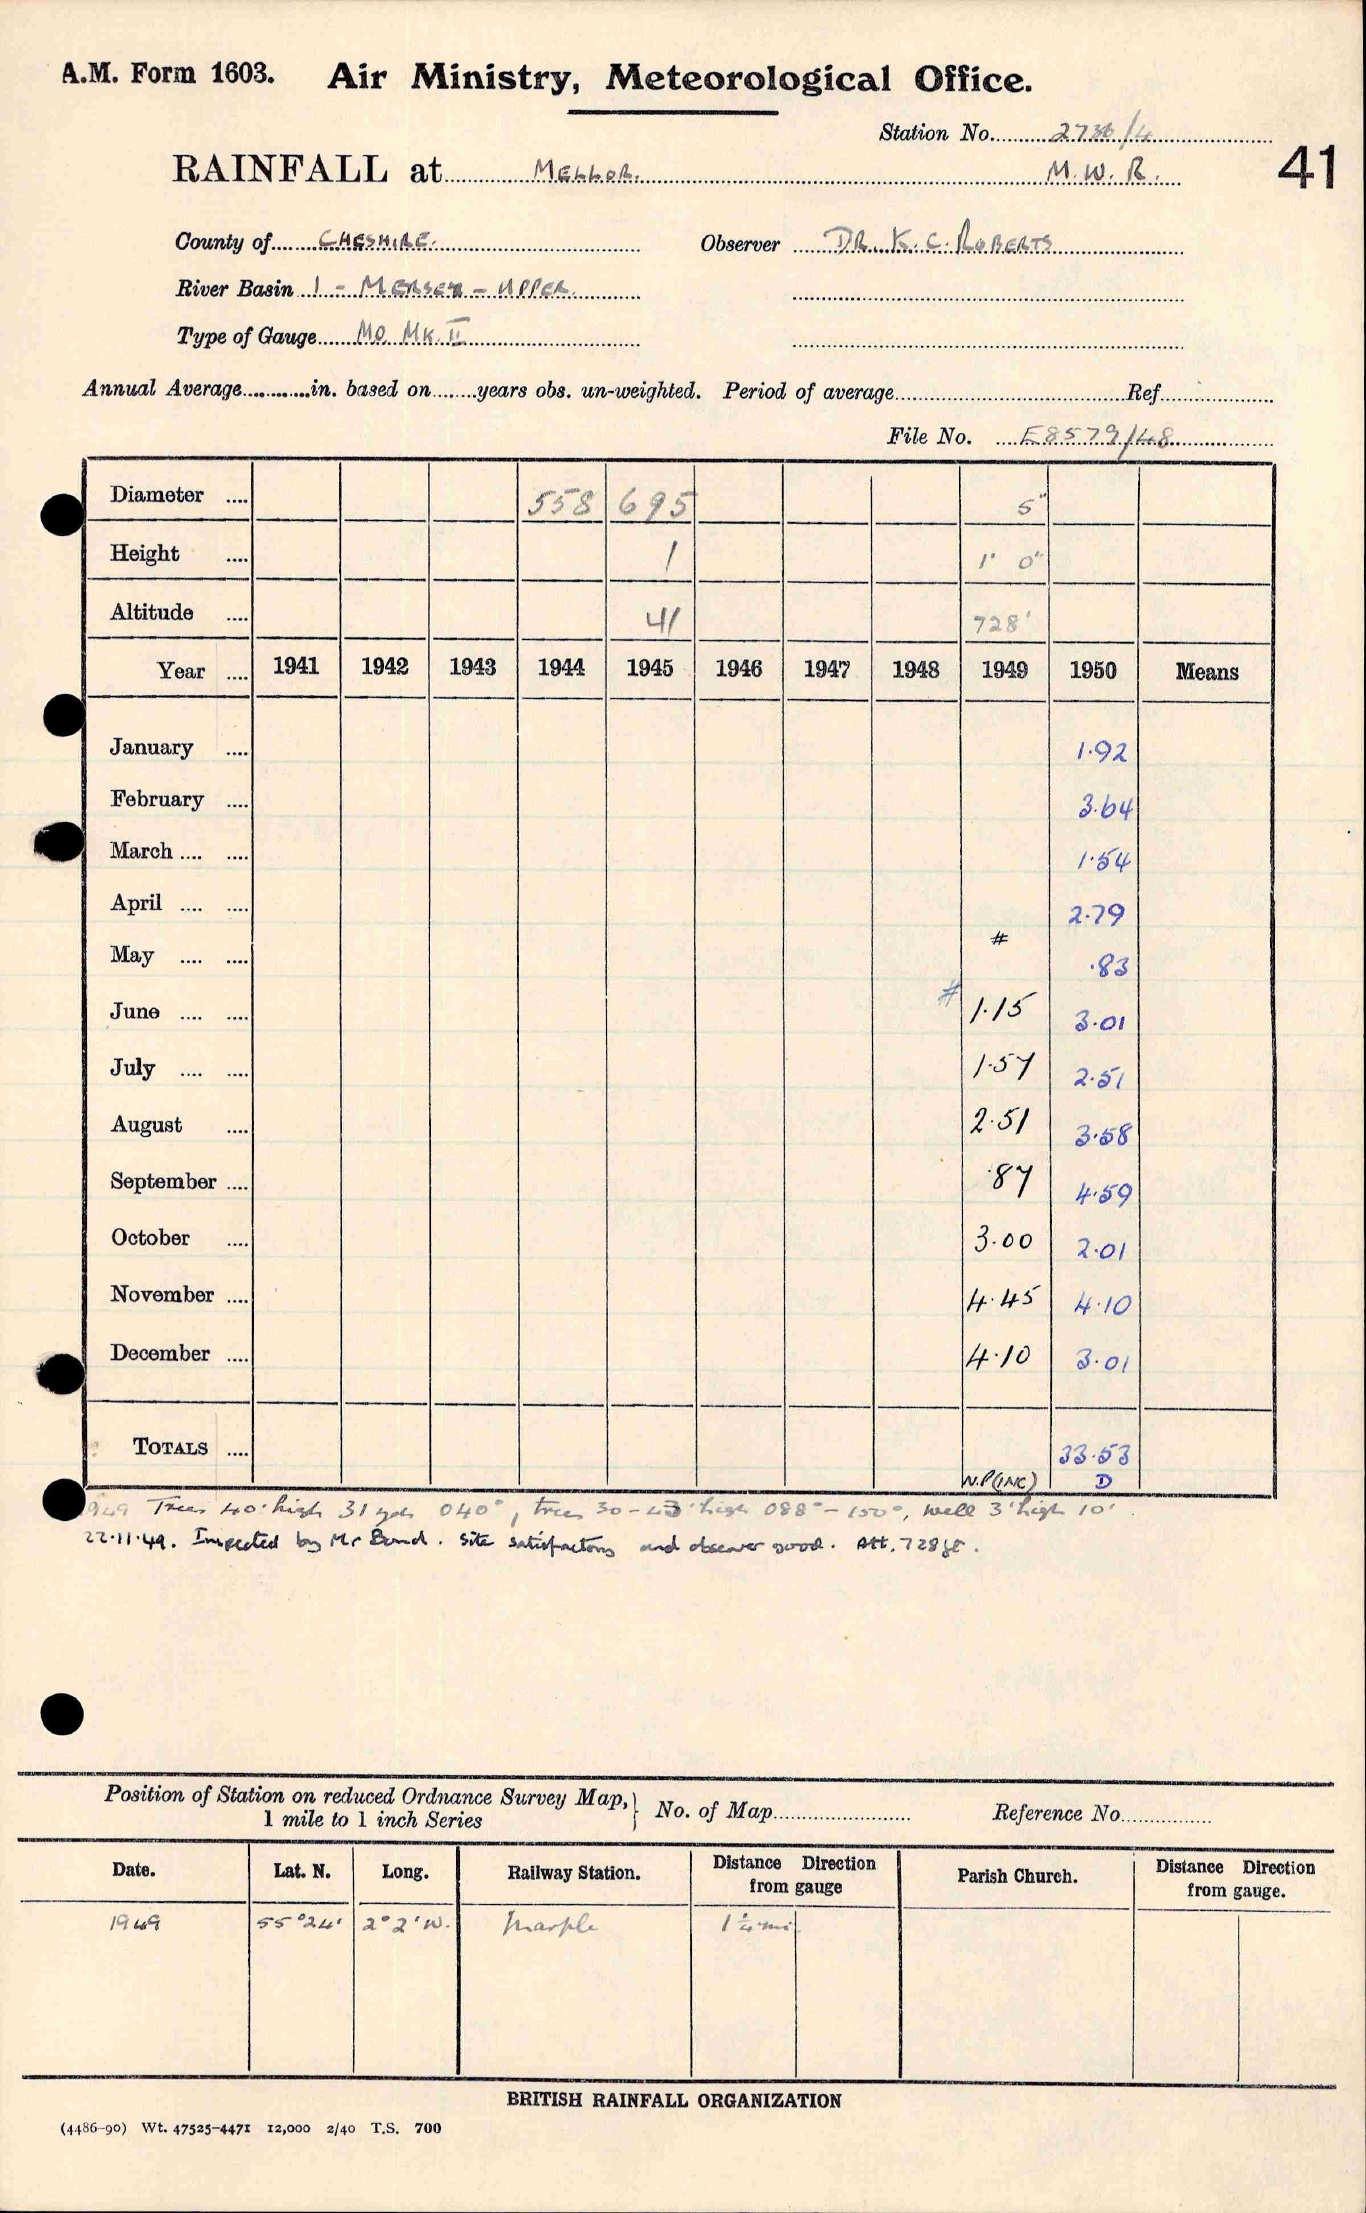 A.M. Form 1603. Air Ministry, Meteorological Office.
Station No. 2736/4
41
RAINFALL at MELLOR. M.W.R.
County of CHESHIRE. Observer DR. K. C. ROBERTS
River Basin 1 - MERSEY - UPPER.
Type of Gauge MO. MK. II
Annual Average in. based on years obs. un-weighted. Period of average Ref
File No. E8579/48
Diameter .... 558 695 5"
Height .... 1 1' 0"
Altitude .... 41 728'
Year .... 1941 1942 1943 1944 1945 1946 1947 1948 1949 1950 Means
January .... 1.92
February .... 3.64
March .... .... 1.54
April .... .... 2.79
May .... .... # .83
June .... .... # 1.15 3.01
July .... .... 1.57 2.51
August .... 2.51 3.58
September .... .87 4.59
October .... 3.00 2.01
November .... 4.45 4.10
December .... 4.10 3.01
TOTALS .... 33.53
N.P.(INC) D
1949 Trees 40' high 31 yds 040°, trees 30- high 088° - 150°, well 3' high 10'
22.11.49. Inspected by Mr Bond. Site satisfactory and observer good. Alt. 728 ft.
Position of Station on reduced Ordnance Survey Map, } No. of Map Reference No.
1 mile to 1 inch Series
Date. Lat. N. Long. Railway Station. Distance Direction from gauge Parish Church. Distance Direction from gauge.
1949 55°24' 2°2'W. Marple 1¼ mi.
BRITISH RAINFALL ORGANIZATION
(4486-90) Wt. 47525-4471 12,000 2/40 T.S. 700